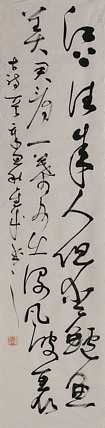 江上往来人但爱鲈鱼
美君看一叶舟出没风波里
古诗一首